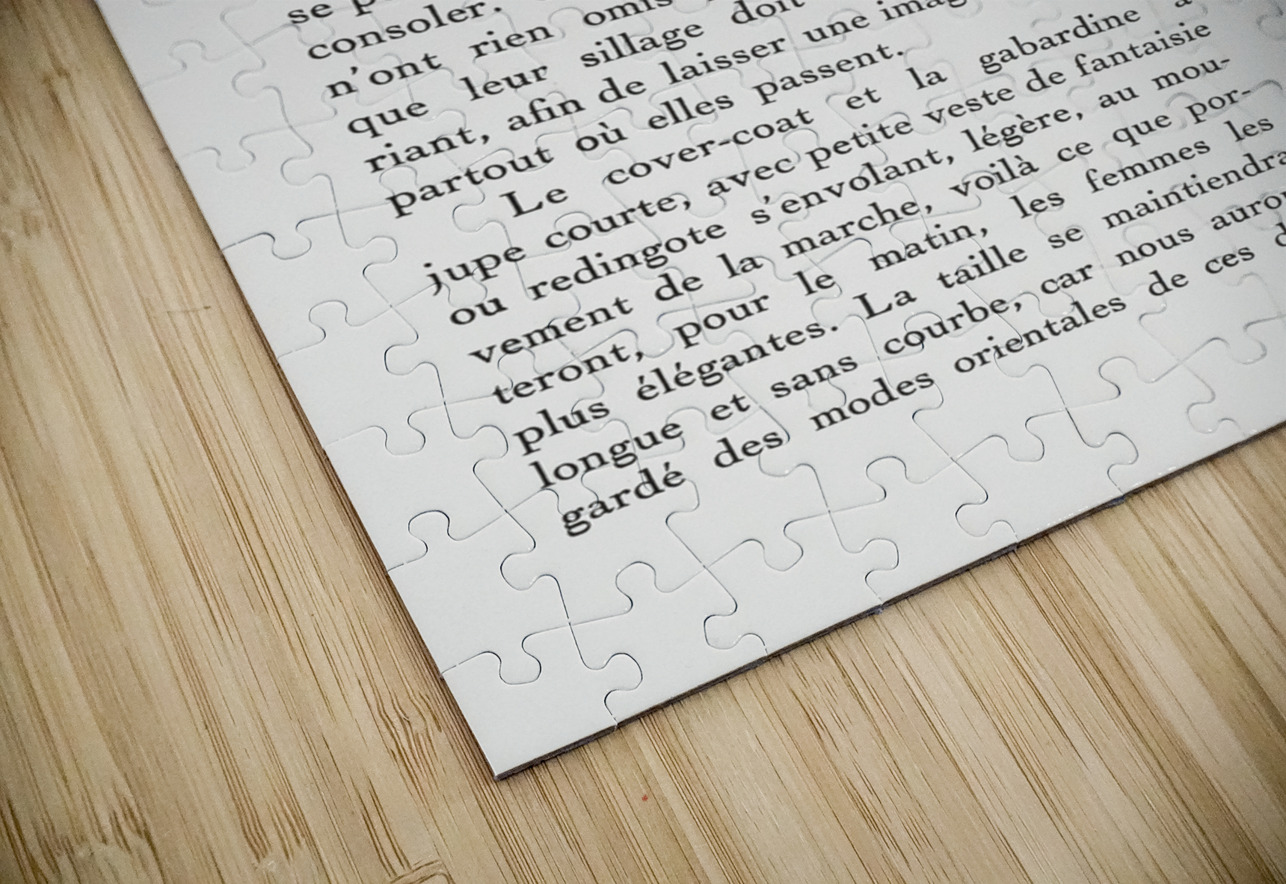 se p
consoler.
n'ont rien omis
que leur sillage doit
riant, afin de laisser une imag
partout où elles passent.
Le cover-coat et la gabardine a
jupe courte, avec petite veste de fantaisie
ou redingote s'envolant, légère, au mou-
vement de la marche, voilà ce que por-
teront, pour le matin, les femmes les
plus élégantes. La taille se maintiendra
longue et sans courbe, car nous auro
gardé des modes orientales de ces d